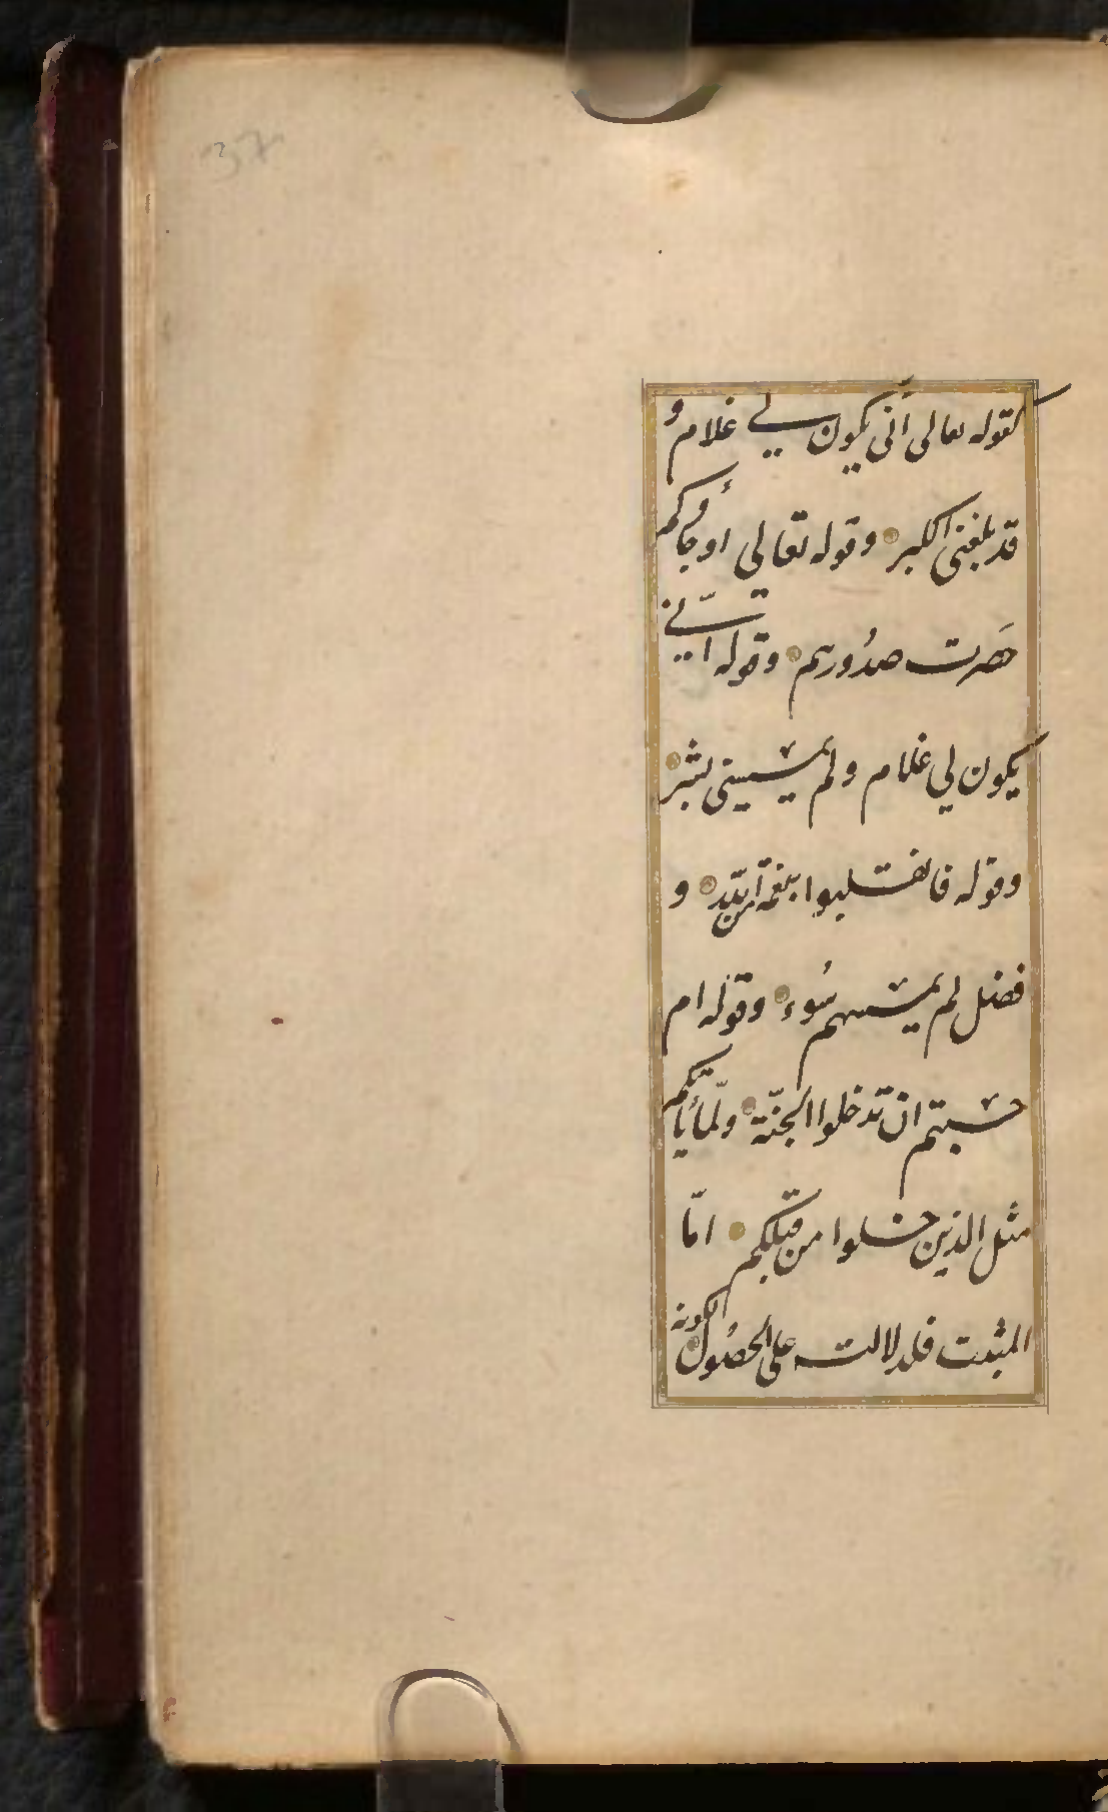 37
كقوله تعالى أنّى يكون لي غلام و
قد بلغني الكبر وقوله تعالي او جاؤكم
حَصرت صدُورهم وقوله انّي
يكون لي غلام ولم يمسسني بشر
وقوله فانقلبوا بنعمة من الله و
فضل لم يمسسهم سُوء وقوله ام
حسبتم ان تدخلوا الجنّة ولمّا يأتكم
مثل الذين خلوا من قبلكم امّا
المثبت فلدلالته على الحصُول لكونه